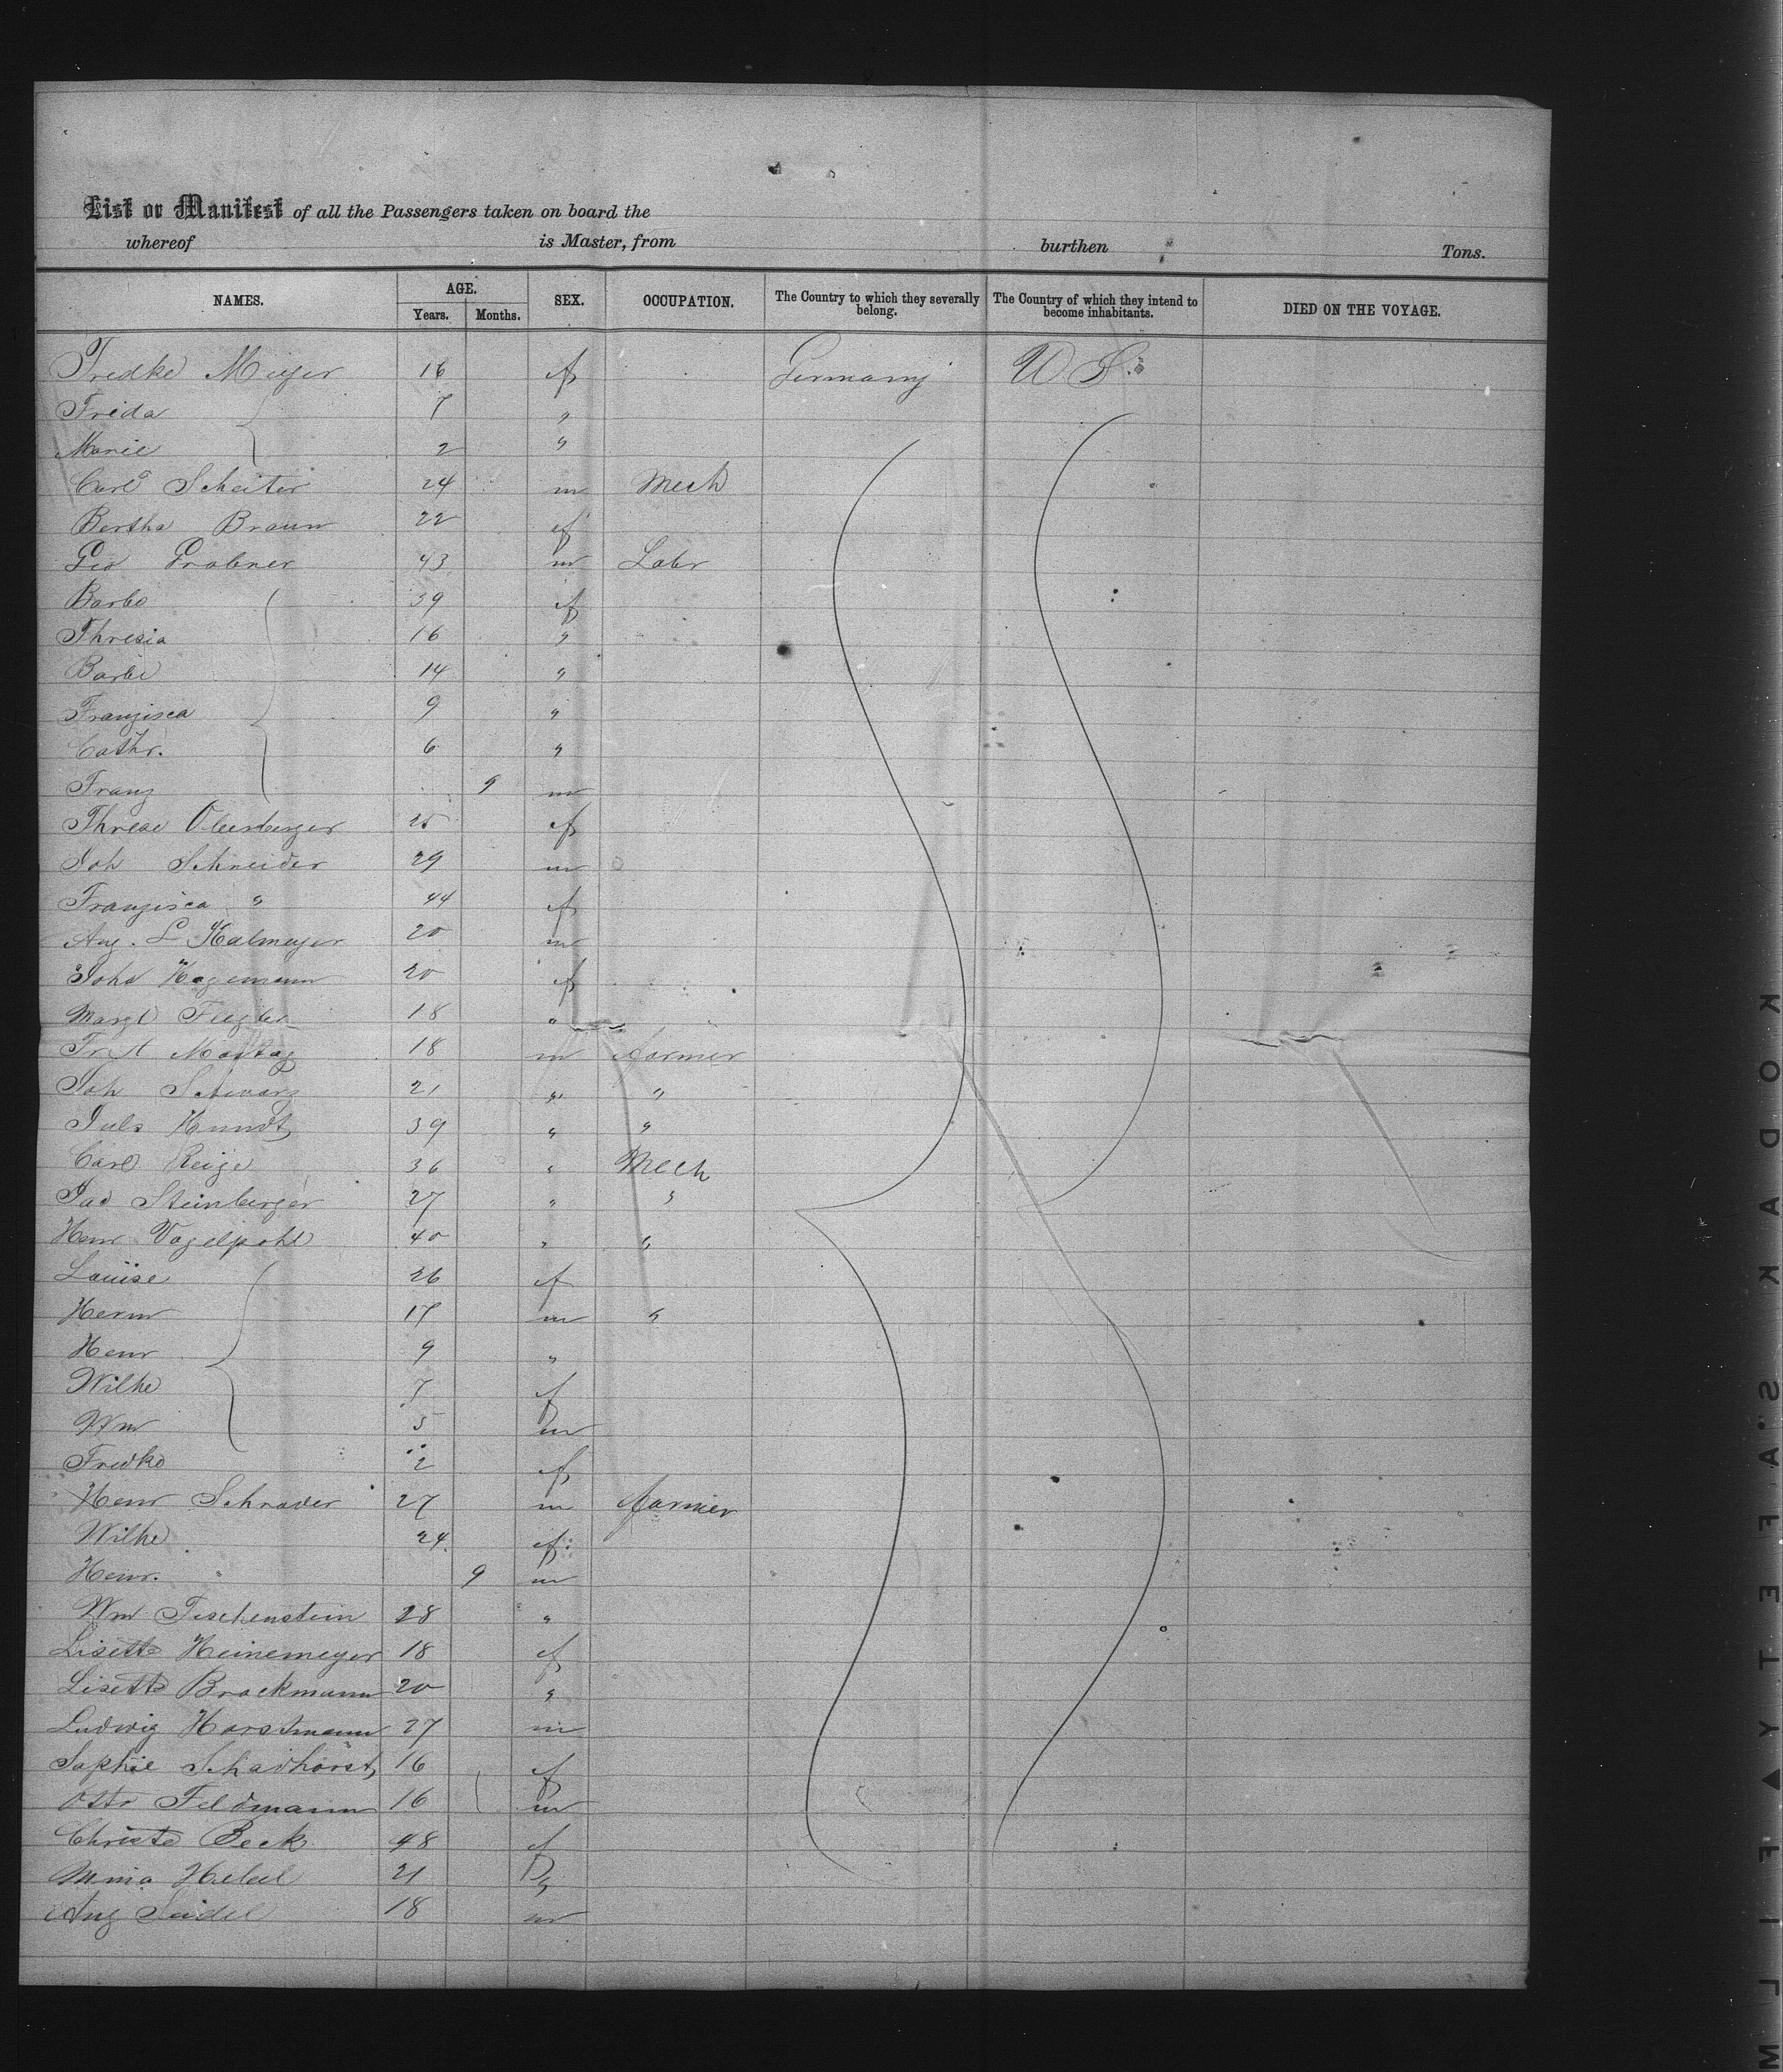 List or Manifest of all the Passengers taken on board the
whereof is Master, from burthen Tons.
NAMES. AGE. Years. Months. SEX. OCCUPATION. The Country to which they severally belong. The Country of which they intend to become inhabitants. DIED ON THE VOYAGE.
Fredke Meyer 16 f Germany U.S.
Frida 7 "
Marie 2 "
Carl Scheiter 24 m Mech
Bertha Braun 22 f
Geo Grabner 43 m Labr
Barba 39 f
Thresia 16 "
Barbe 14 "
Franzisca 9 "
Cathr. 6 "
Franz 9 m
Threse 25 f
Joh Schneider 29 m
Franzisca " 44 f
Aug. L Kalmeyer 20 m
Joha Hagemann 20 f
Margt 18 "
Montag 18 m farmer
Joh Schwarz 21 " "
Juls Hundt 39 " "
Carl Reize 36 " Mech
Steinberger 27 " "
Henr Vogelpohl 40 " "
Louise 26 f
Herm 17 m "
Henr 9 "
Wilhe 7 f
Wm 5 m
Fredke 2 f
Henr Schrader 27 m farmer
Wilhe 24 f
Henr. " 9 m
Wm Tischenstein 28 "
Lisette Heinemeyer 18 f
Lisette Brockmann 20 "
Ludwig Horstmann 27 m
Sophie Schadhorst 16 f
Otto Feldmann 16 m
Christe Beck 48 f
Minia Hebel 21 "
Aug Seidel 18 m
KODAK S.A.F.E.T.Y▲FILM